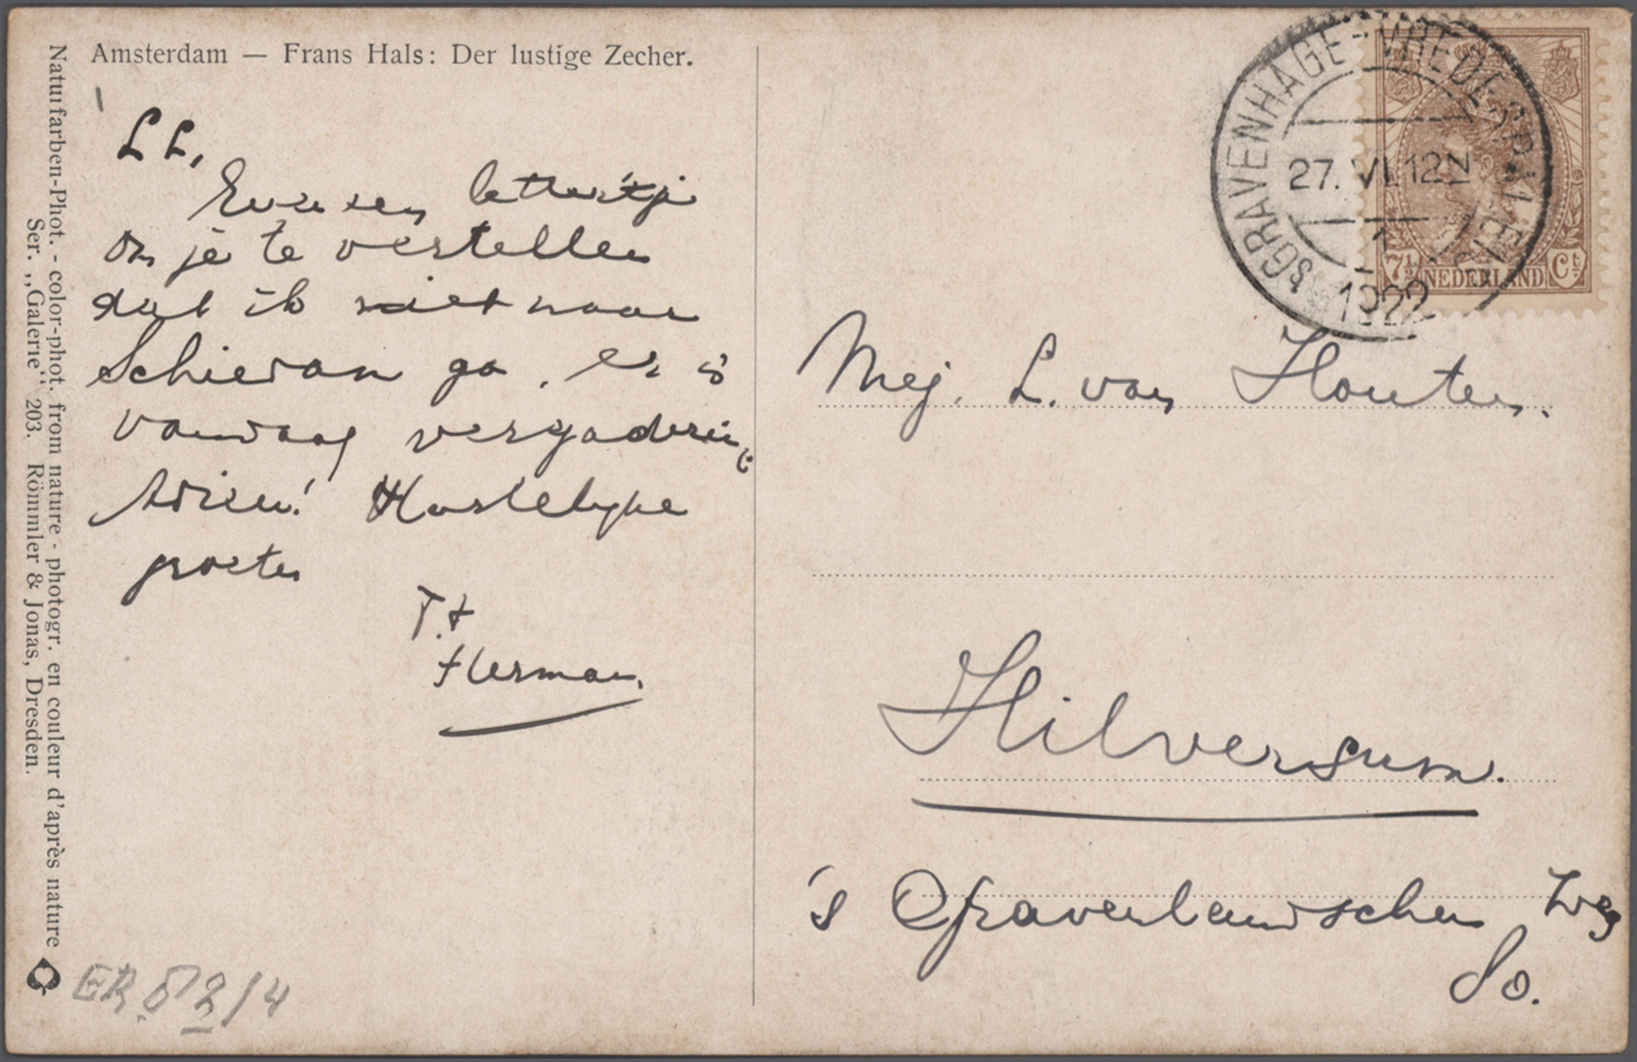 Amsterdam — Frans Hals: Der lustige Zecher.
L L,
Even een lettertje
om je te vertellen
dat ik niet naar
Schiedam ga. Er is
vandaag vergadering
Adieu! Hartelyke
groeten
T.t
Herman.
Naturfarben-Phot. - color-phot. from nature - photogr. en couleur d'après nature
Ser. „Galerie“ 203. Römmler & Jonas, Dresden.
ER.52/4
'SGRAVENHAGE-VREDESPALEIS
27.VI.12N
1922
7½ NEDERLAND Ct
Mej. L. van Houten.
Hilversum.
's Gravenlandschen Weg
80.